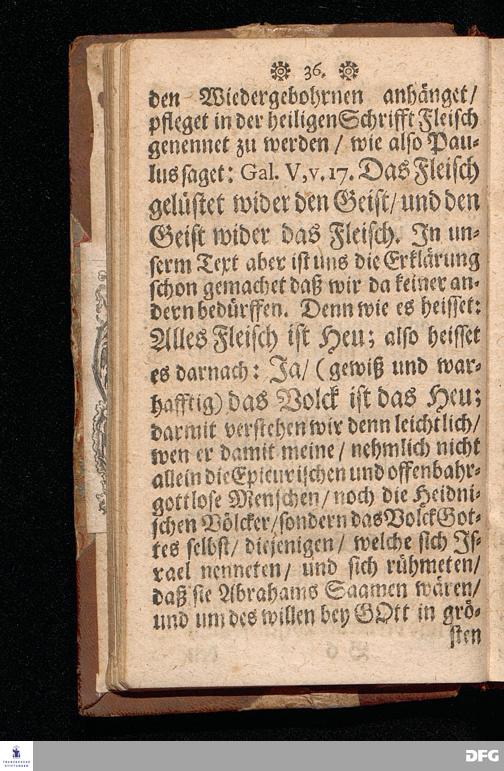 36.
den Wiedergebohrnen anhänget/
pfleget in der heiligen Schrifft Fleisch
genennet zu werden / wie also Pau-
lus saget: Gal. V, v. 17. Das Fleisch
gelüstet wider den Geist/ und den
Geist wider das Fleisch. In un-
serm Text aber ist uns die Erklärung
schon gemachet daß wir da keiner an-
dern bedürffen. Denn wie es heisset:
Alles Fleisch ist Heu; also heisset
es darnach: Ja/ (gewiß und war-
hafftig) das Volck ist das Heu;
darmit verstehen wir denn leichtlich/
wen er damit meine/ nehmlich nicht
allein die Epicurischen und offenbahr-
gottlose Menschen/ noch die Heidni-
schen Völcker/ sondern das Volck Got-
tes selbst/ diejenigen/ welche sich Is-
rael nenneten/ und sich rühmeten/
daß sie Abrahams Saamen wären/
und um des willen bey GOtt in grö-
sten
FRANCKESCHE
STIFTUNGEN
DFG